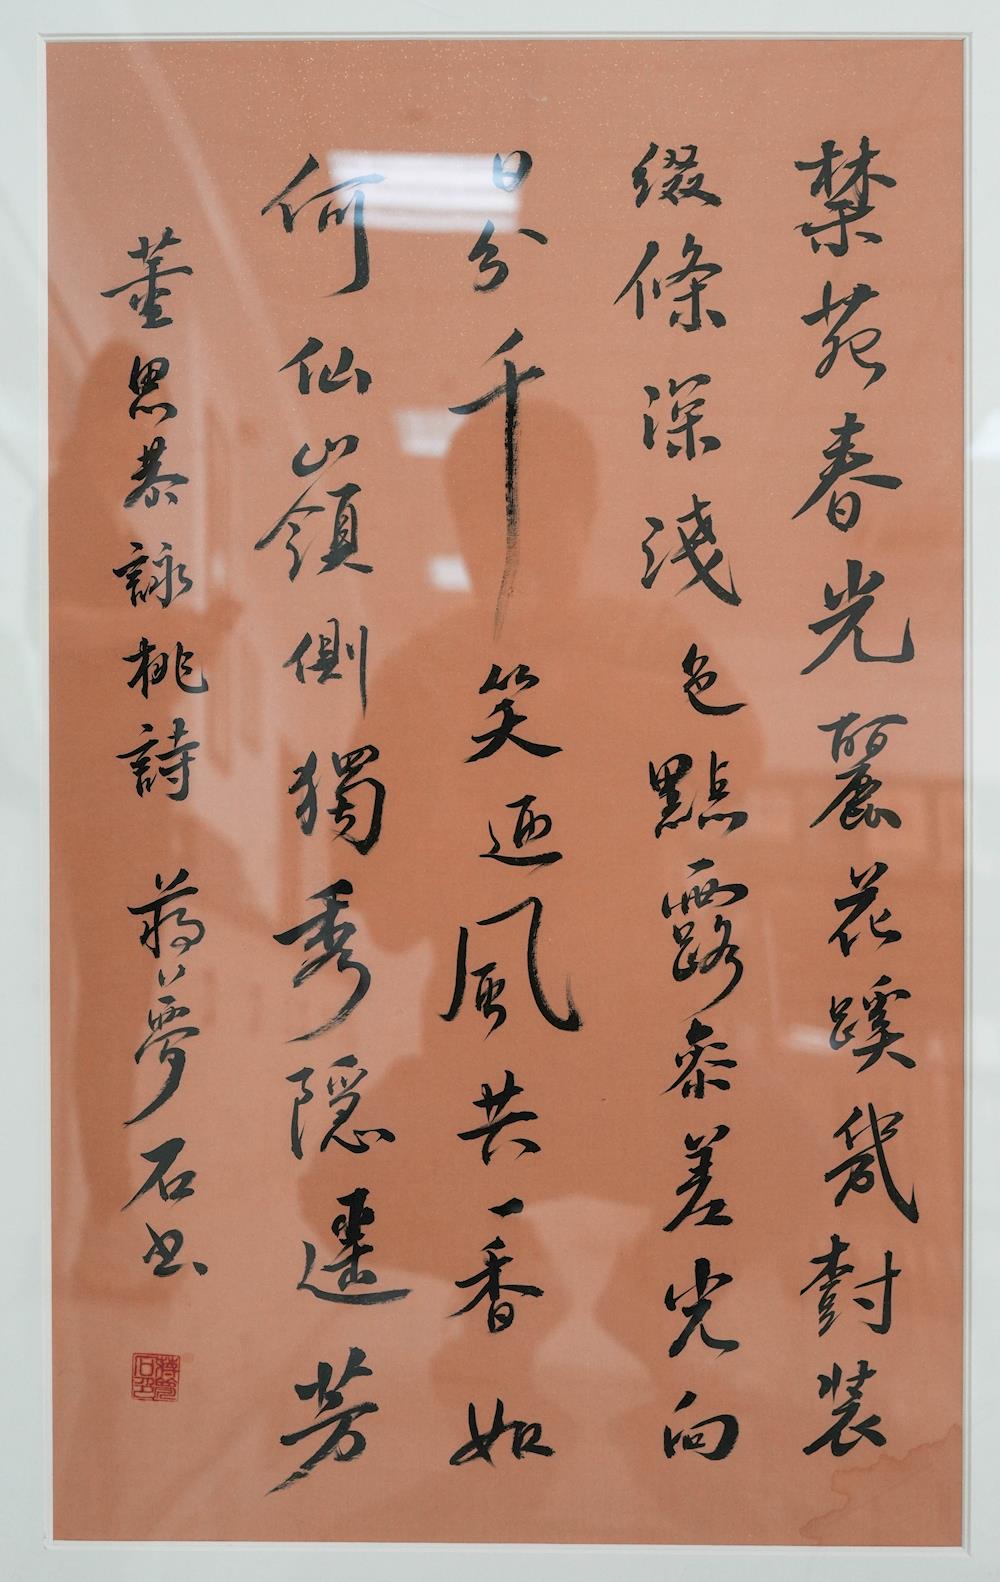 禁苑春光麗花蹊幾對裝
綴條深淺色點露參差光向
日分千笑迎風共一香如
何仙山嶺側獨秀隱遥芳
董思恭詠桃詩 蔣夢石书
蔣夢石印